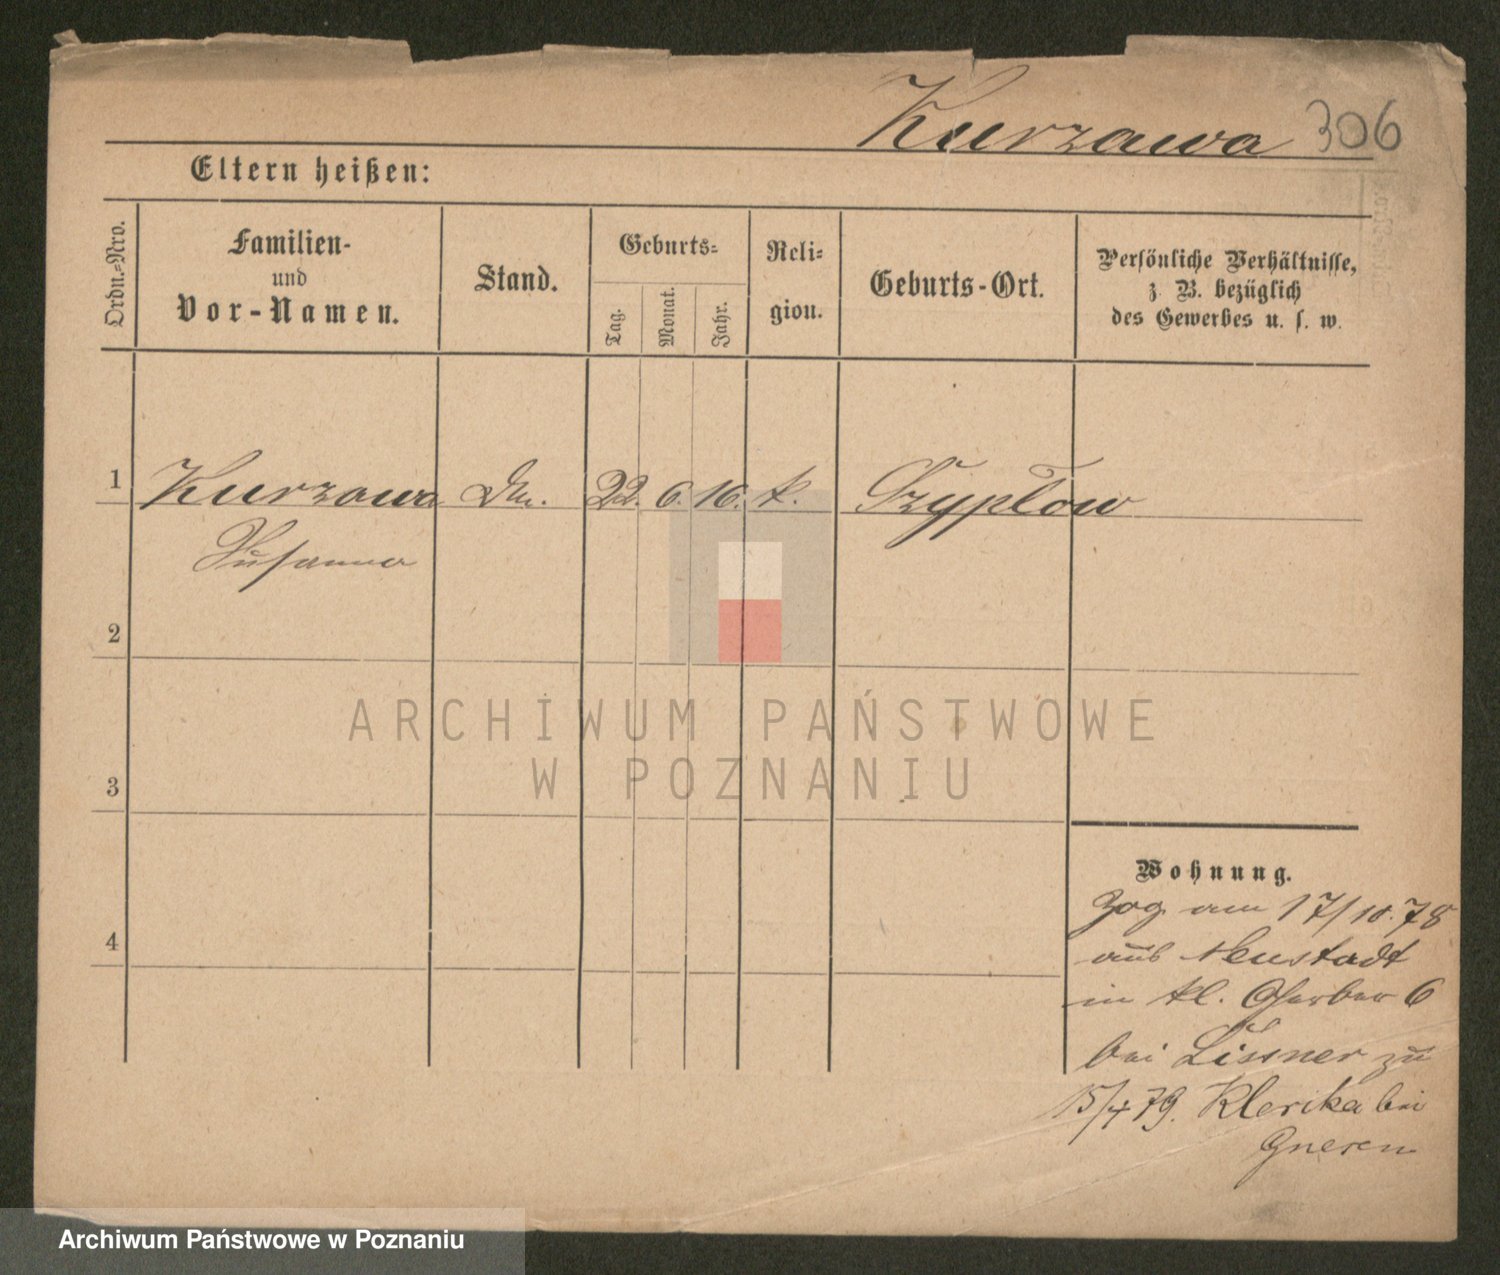 Kurzawa 306
Eltern heißen:
Ordn.-Nro.
Familien-
und
Vor-Namen.
Stand.
Geburts-
Tag.
Monat.
Jahr.
Reli-
gion.
Geburts-Ort.
Persönliche Verhältnisse,
z. B. bezüglich
des Gewerbes u. s. w.
1 Kurzawa 22. 6. 16. k. Szypłow
Susanna
2
3
4
ARCHIWUM PAŃSTWOWE
W POZNANIU
Wohnung.
Zog am 17/10.78
aus Neustadt
in kl. Gerber 6
bei Lissner zu
15/4 79. Klerika bei
Gnesen
Archiwum Państwowe w Poznaniu